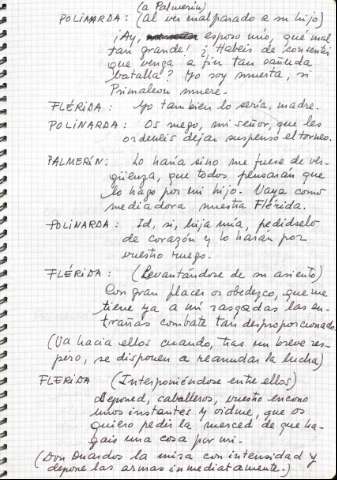 (a Palmerín)
POLINARDA: (al ver malparado a su hijo)
¡Ay, esposo mío, qué mal
tan grande! ¿Habéis de consentir
que venga a fin tan sañuda
batalla? Yo soy muerta, si
Primaleón muere.
FLÉRIDA: Yo también lo sería, madre.
POLINARDA: Os ruego, mi señor, que les
ordenéis dejar suspenso el torneo.
PALMERÍN: Lo haría si no me fuese de ver-
güenza, que todos pensarán que
lo hago por mi hijo. Vaya como
mediadora nuestra Flérida.
POLINARDA: Id, si, hija mía, pedídselo
de corazón y lo harán por
vuestro ruego.
FLÉRIDA: (Levantándose de su asiento)
Con gran placer os obedezco, que me
tiene ya a mí rasgadas las en-
trañas combate tan desproporcionado
(Va hacia ellos cuando, tras un breve res-
pero, se disponen a reanudar la lucha)
FLÉRIDA (Interponiéndose entre ellos)
Deponed, caballeros, vuestro encono
unos instantes y oidme, que os
quiero pedir la merced de que ha-
gáis una cosa por mí.
(Don Duardos la mira con intensidad y
depone las armas inmediatamente.)